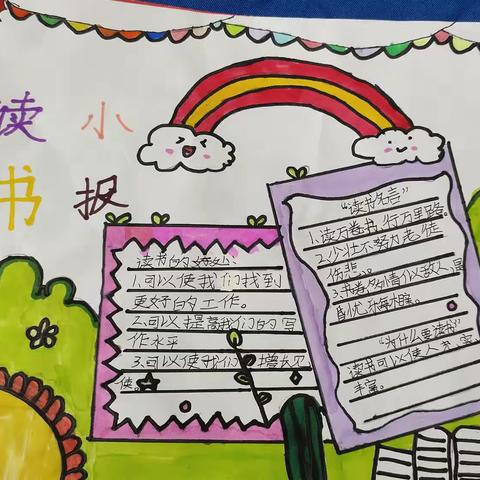 读 小
书 报
读书的好处:
1.可以使我们找到
更好的工作。
2.可以提高我们的写
作水平
3.可以使我们增长见
识。
“读书名言”
1.读万卷书,行万里路。
2.少壮不努力老徒
伤悲。
3.书卷多情似故人,晨
昏忧乐每相亲。
“为什么要读书”
读书可以使人充实
丰富。